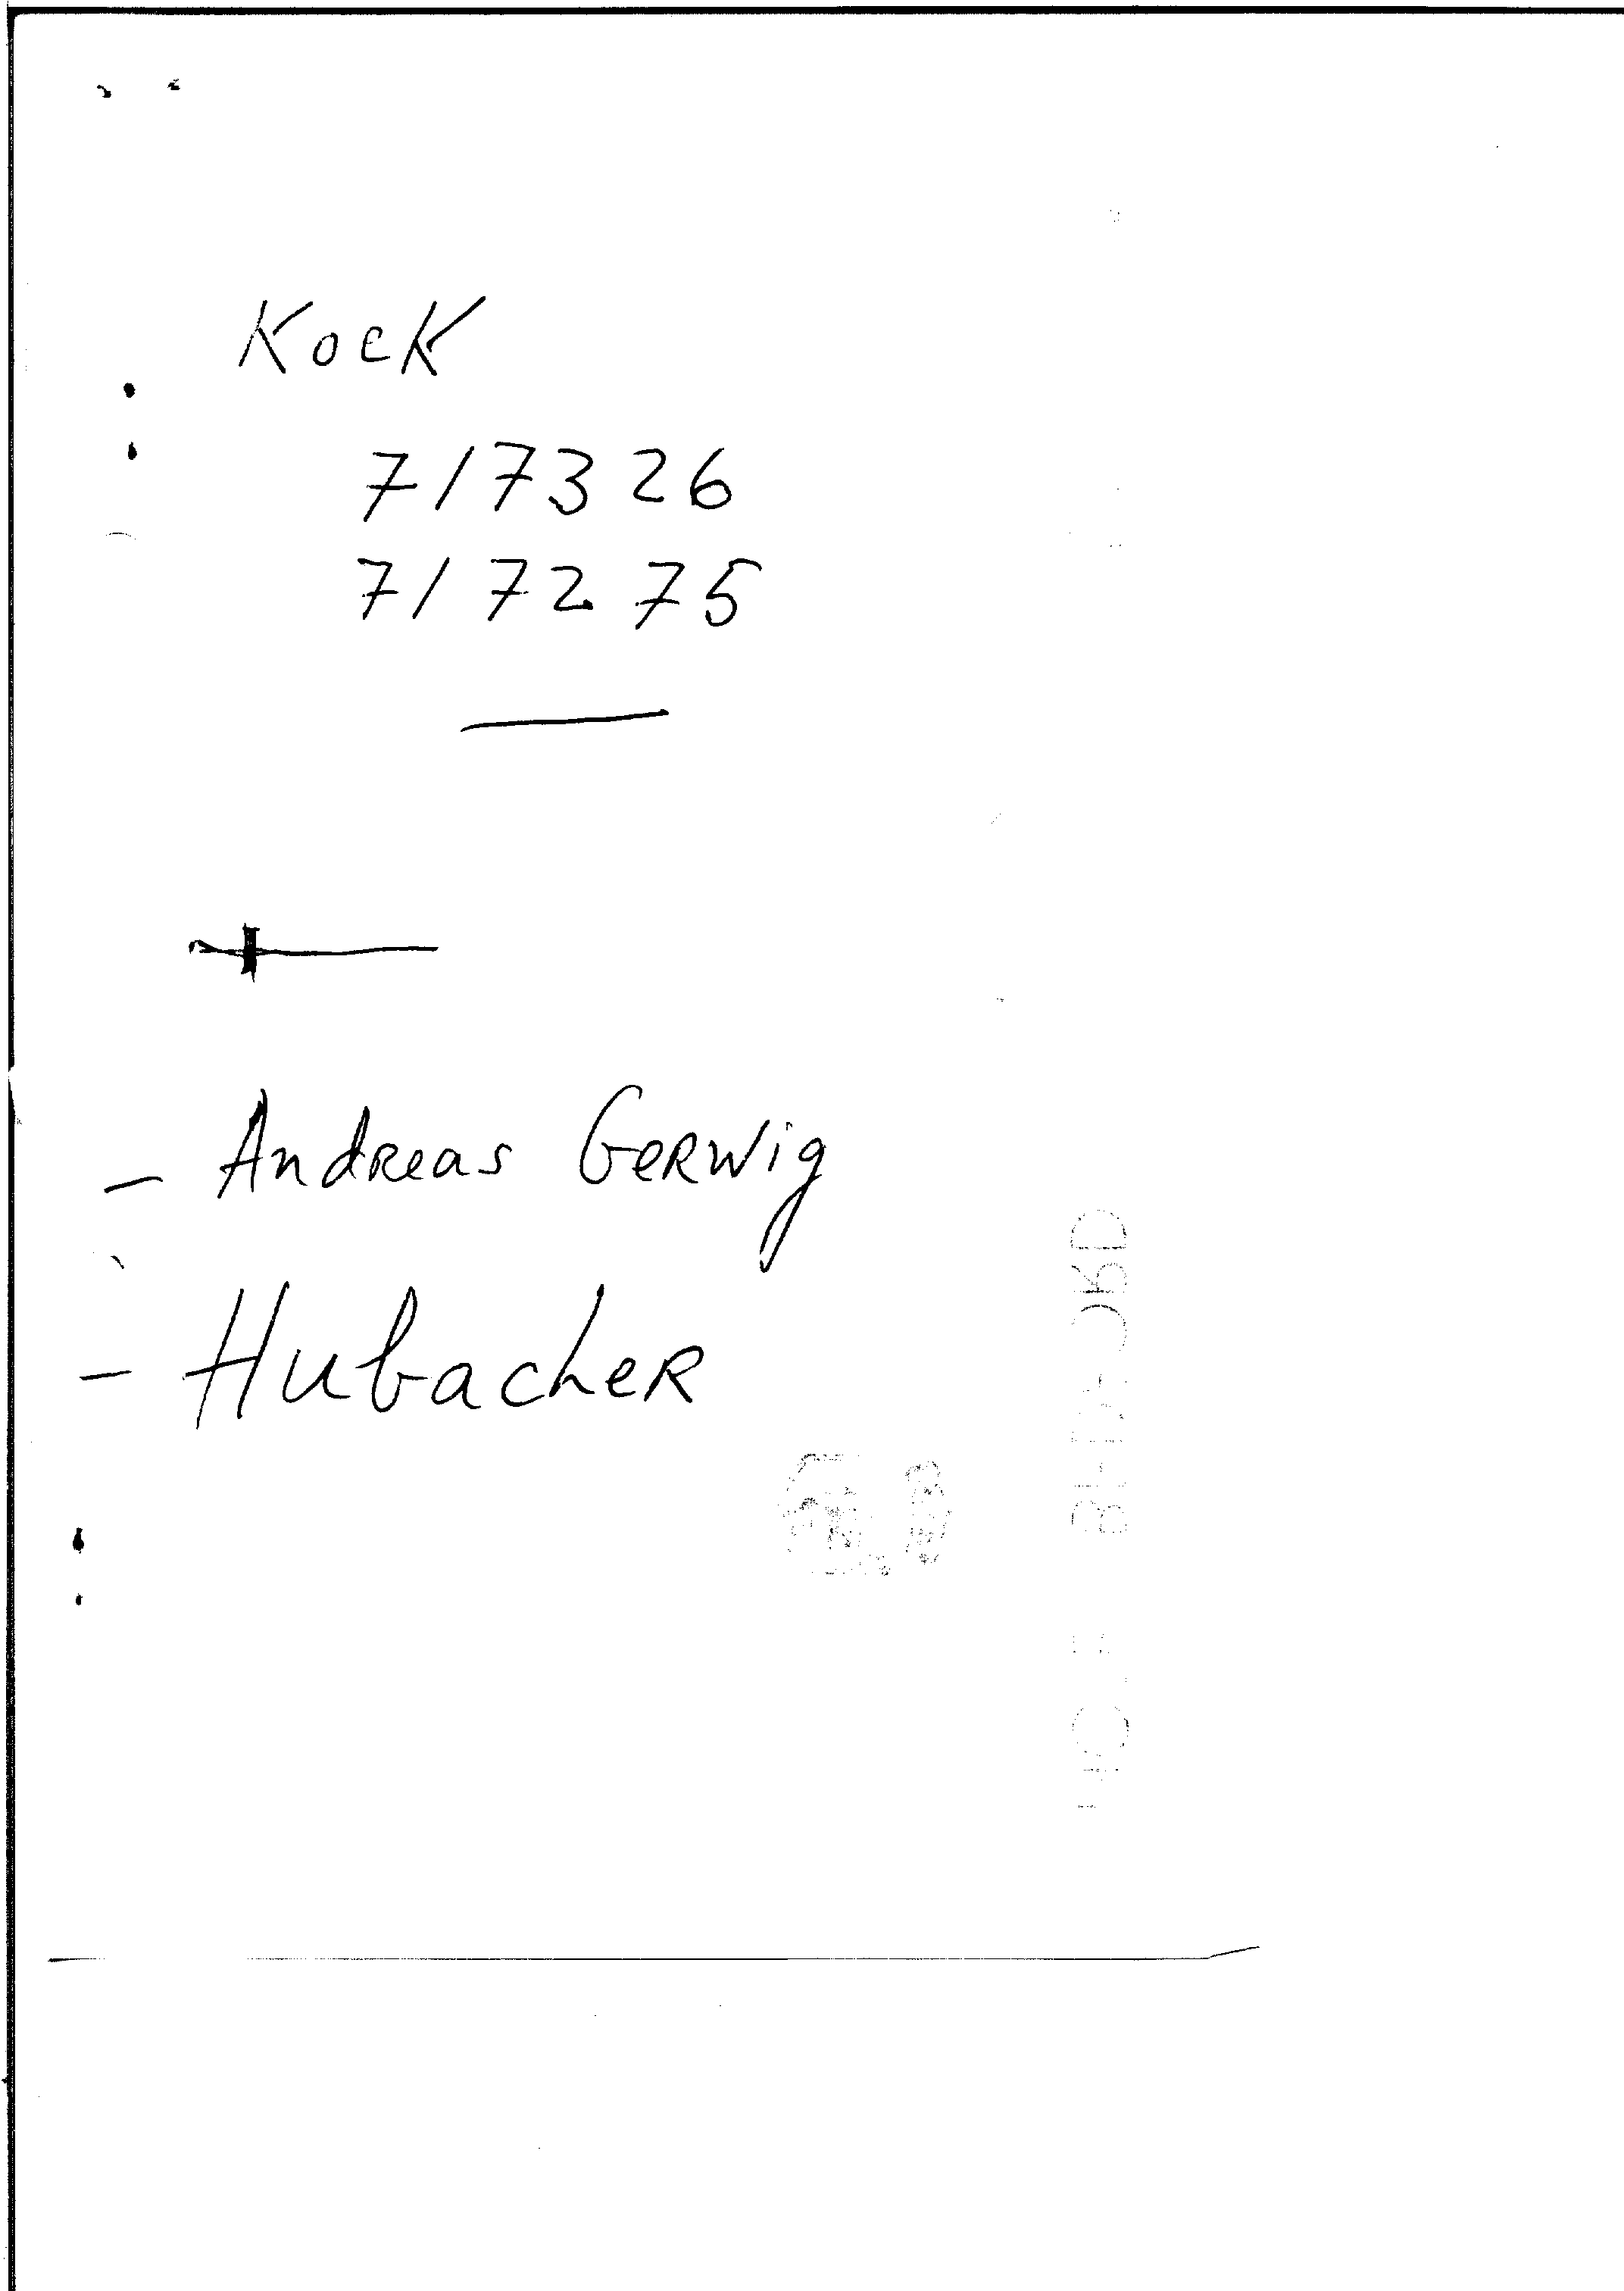 Kock
7/7326
7/7275
- Andreas Gerwig
- Hubacher